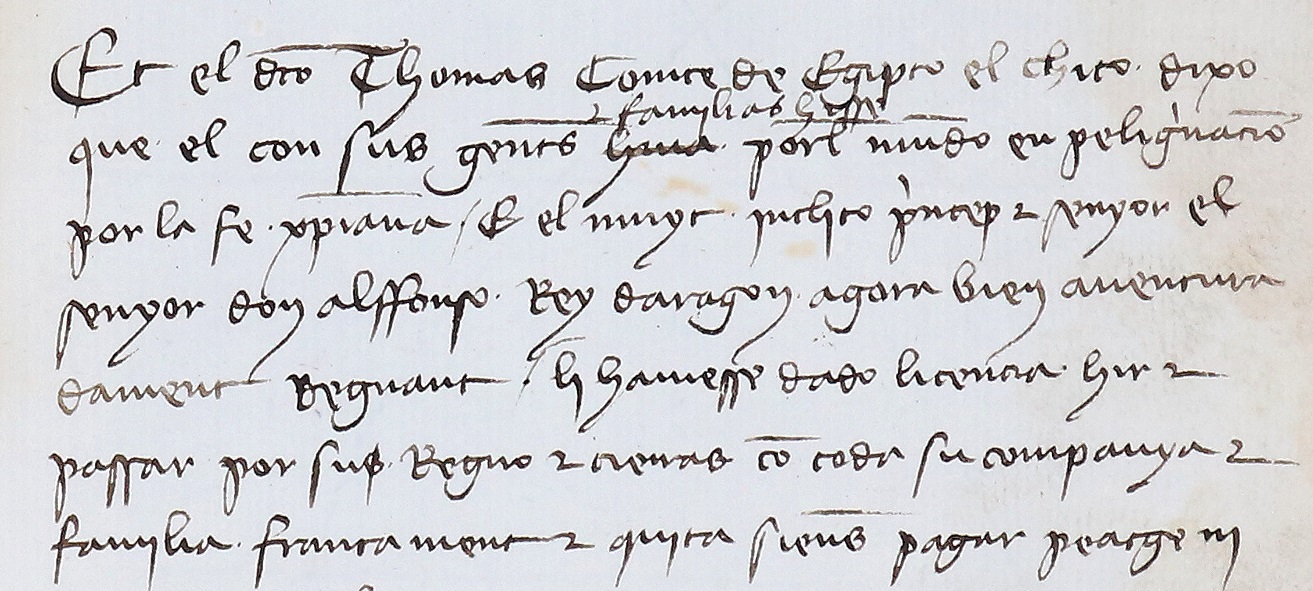 Et el dco Thomas Comte de Egipto el chico dixo
⁊ familias hesse
que el con sus gents hiua porl mundo en peligrnacio
por la fe xpiana / E el muyt inclito princep ⁊ senyor el
senyor don alffonso Rey daragon agora bien auentura
dament Regnant / li hauiesse dado licencia hir ⁊
passar por sus Regno ⁊ tierras co toda su companya ⁊
familia francament ⁊ quita siens pagar peatge ni